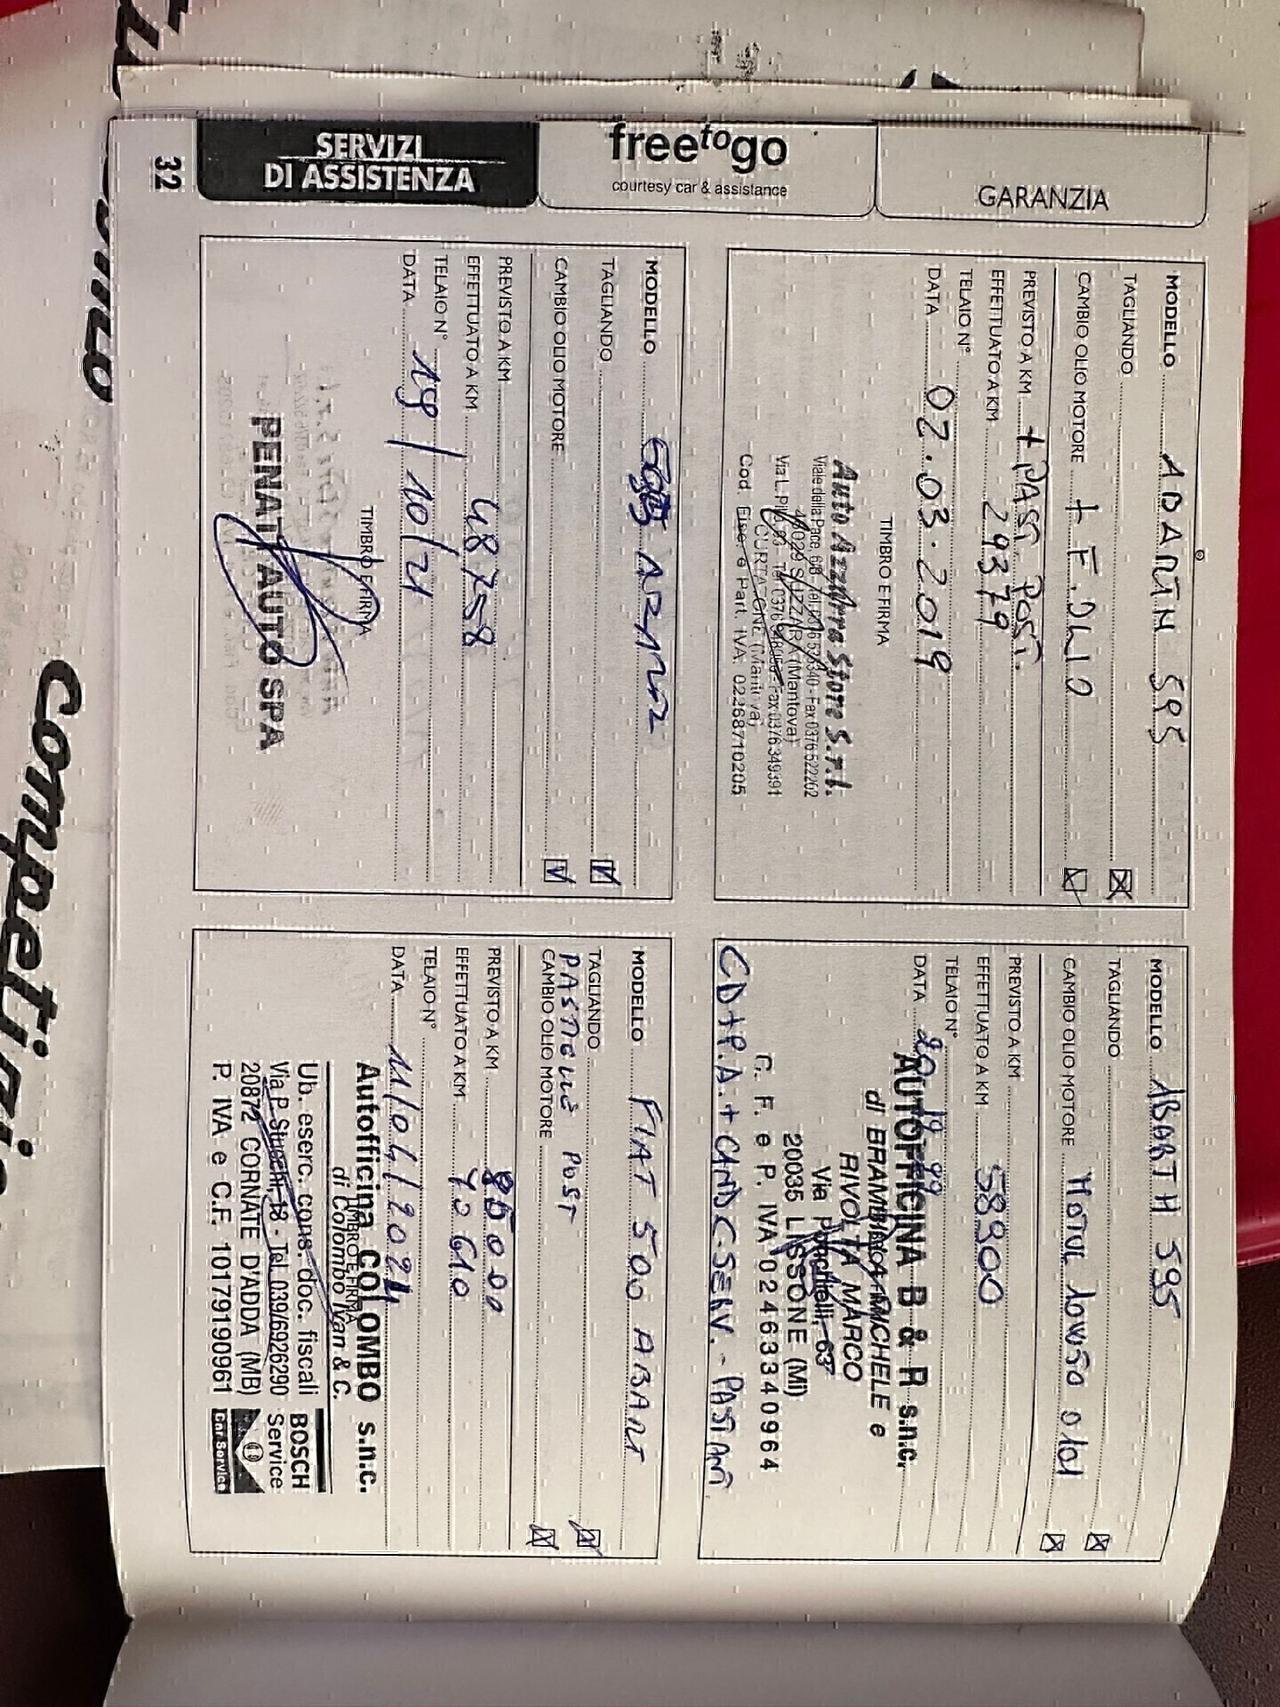 SERVIZI
DI ASSISTENZA
freetogo
courtesy car & assistance
GARANZIA
32
MODELLO ABARTH 595
TAGLIANDO
CAMBIO OLIO MOTORE + F. OLIO
PREVISTO A KM + PAST. POST.
EFFETTUATO A KM 29379
TELAIO N°
DATA 02.03.2019
TIMBRO E FIRMA
Auto Azzurra Store S.r.l.
Viale della Pace, 6/B - Tel. 0376 523340 - Fax 0376 522262
46029 SUZZARA (Mantova)
Fax 0376 349391
CURTATONE (Mantova)
Cod. Fisc. e Part. IVA: 02268710205
MODELLO ABARTH 595
TAGLIANDO
CAMBIO OLIO MOTORE MOTUL 10W50
PREVISTO A KM
EFFETTUATO A KM 58900
TELAIO N°
DATA
AUTOFFICINA B & R s.n.c.
di BRAMBILLA MICHELE e
RIVOLTA MARCO
Via Ponchielli, 63
20035 LISSONE (MI)
C. F. e P. IVA 02463340964
MODELLO 595 ABARTH
TAGLIANDO
CAMBIO OLIO MOTORE
PREVISTO A KM
EFFETTUATO A KM 48758
TELAIO N°
DATA 19/10/21
TIMBRO E FIRMA
PENATI AUTO SPA
MODELLO FIAT 500 ABART
TAGLIANDO
PASTIGLIE POST
CAMBIO OLIO MOTORE
PREVISTO A KM 85000
EFFETTUATO A KM 70610
TELAIO N°
DATA 11/04/2024
TIMBRO E FIRMA
Autofficina COLOMBO s.n.c.
di Colombo Ivan & C.
Ub. eserc. cons. doc. fiscali
Via P. Stucchi, 18 - Tel. 039/6926290
20872 CORNATE D'ADDA (MB)
P. IVA e C.F. 10179190961
BOSCH
Service
Car Service
Competizione